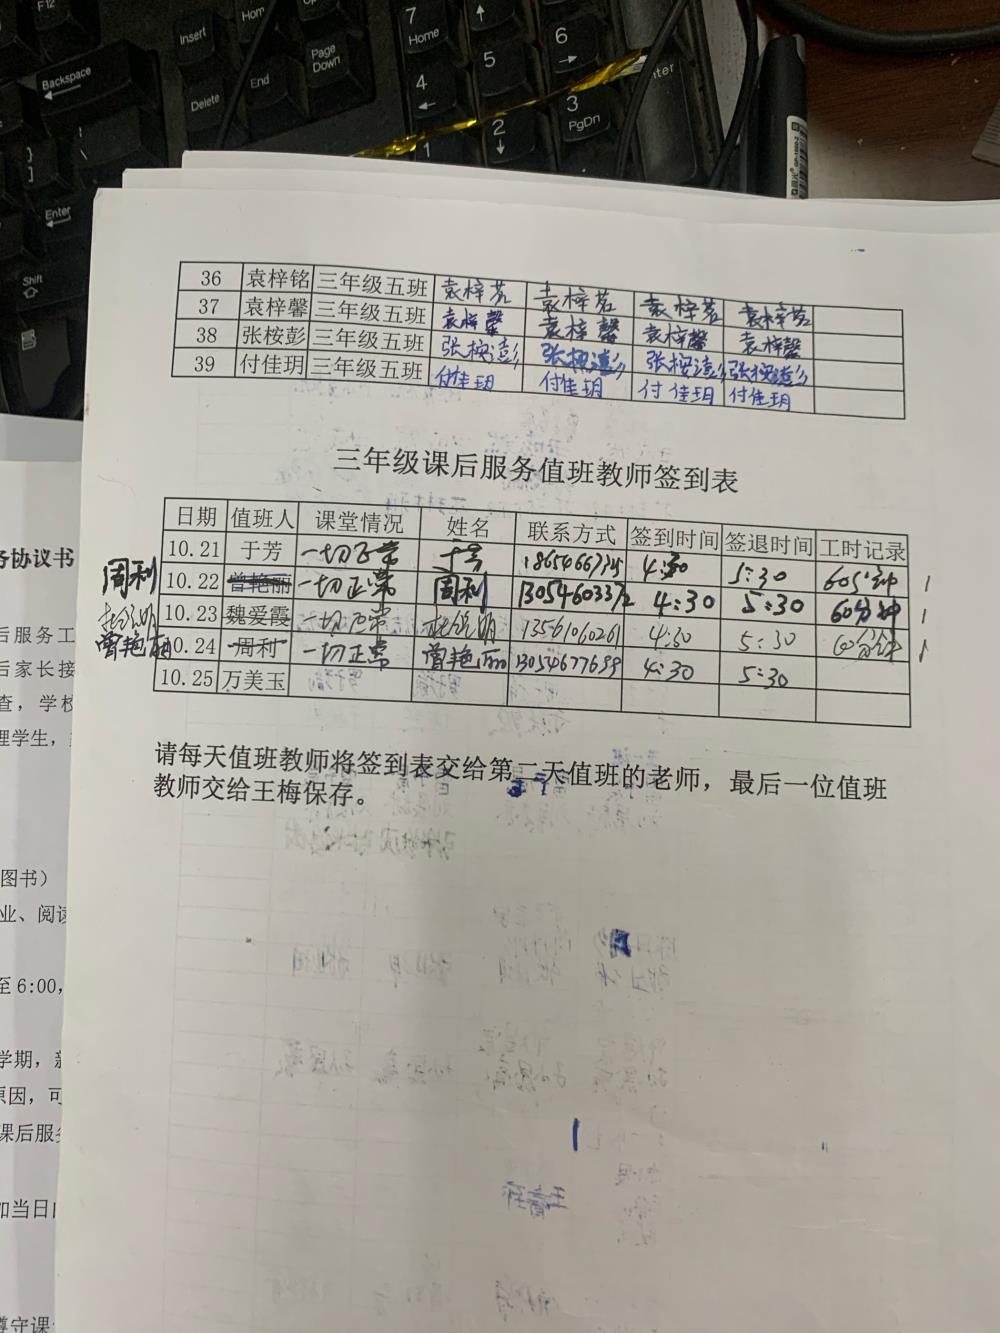 F12
Backspace
Insert
Hom
Page Down
7 Home
Delete
End
4
5
6
Enter
1
2
3 PgDn
Shift
36 袁梓铭 三年级五班 袁梓茗 袁梓茗 袁梓茗 袁梓茗
37 袁梓馨 三年级五班 袁梓馨 袁梓馨 袁梓馨 袁梓馨
38 张桉彭 三年级五班 张桉澎 张桉澎 张桉澎 张桉澎
39 付佳玥 三年级五班 付佳玥 付佳玥 付佳玥 付佳玥
三年级课后服务值班教师签到表
日期 值班人 课堂情况 姓名 联系方式 签到时间 签退时间 工时记录
10.21 于芳 一切正常 于芳 4:30 5:30 60分钟
周利 10.22 曾艳丽 一切正常 周利 13054603372 4:30 5:30 60分钟
10.23 魏爱霞 一切正常 13561060261 4:30 5:30 60分钟
曾艳丽 10.24 周利 一切正常 曾艳丽 13054677699 4:30 5:30
10.25 万美玉
请每天值班教师将签到表交给第二天值班的老师，最后一位值班
教师交给王梅保存。
务协议书
后服务工
后家长接
查，学校
理学生，
图书）
业、阅读
至 6:00，
学期，新
原因，可
课后服务
加当日
遵守课